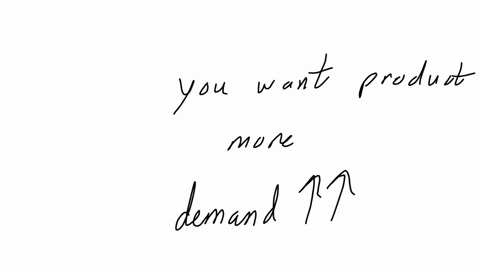 you want product
more
demand ↑↑